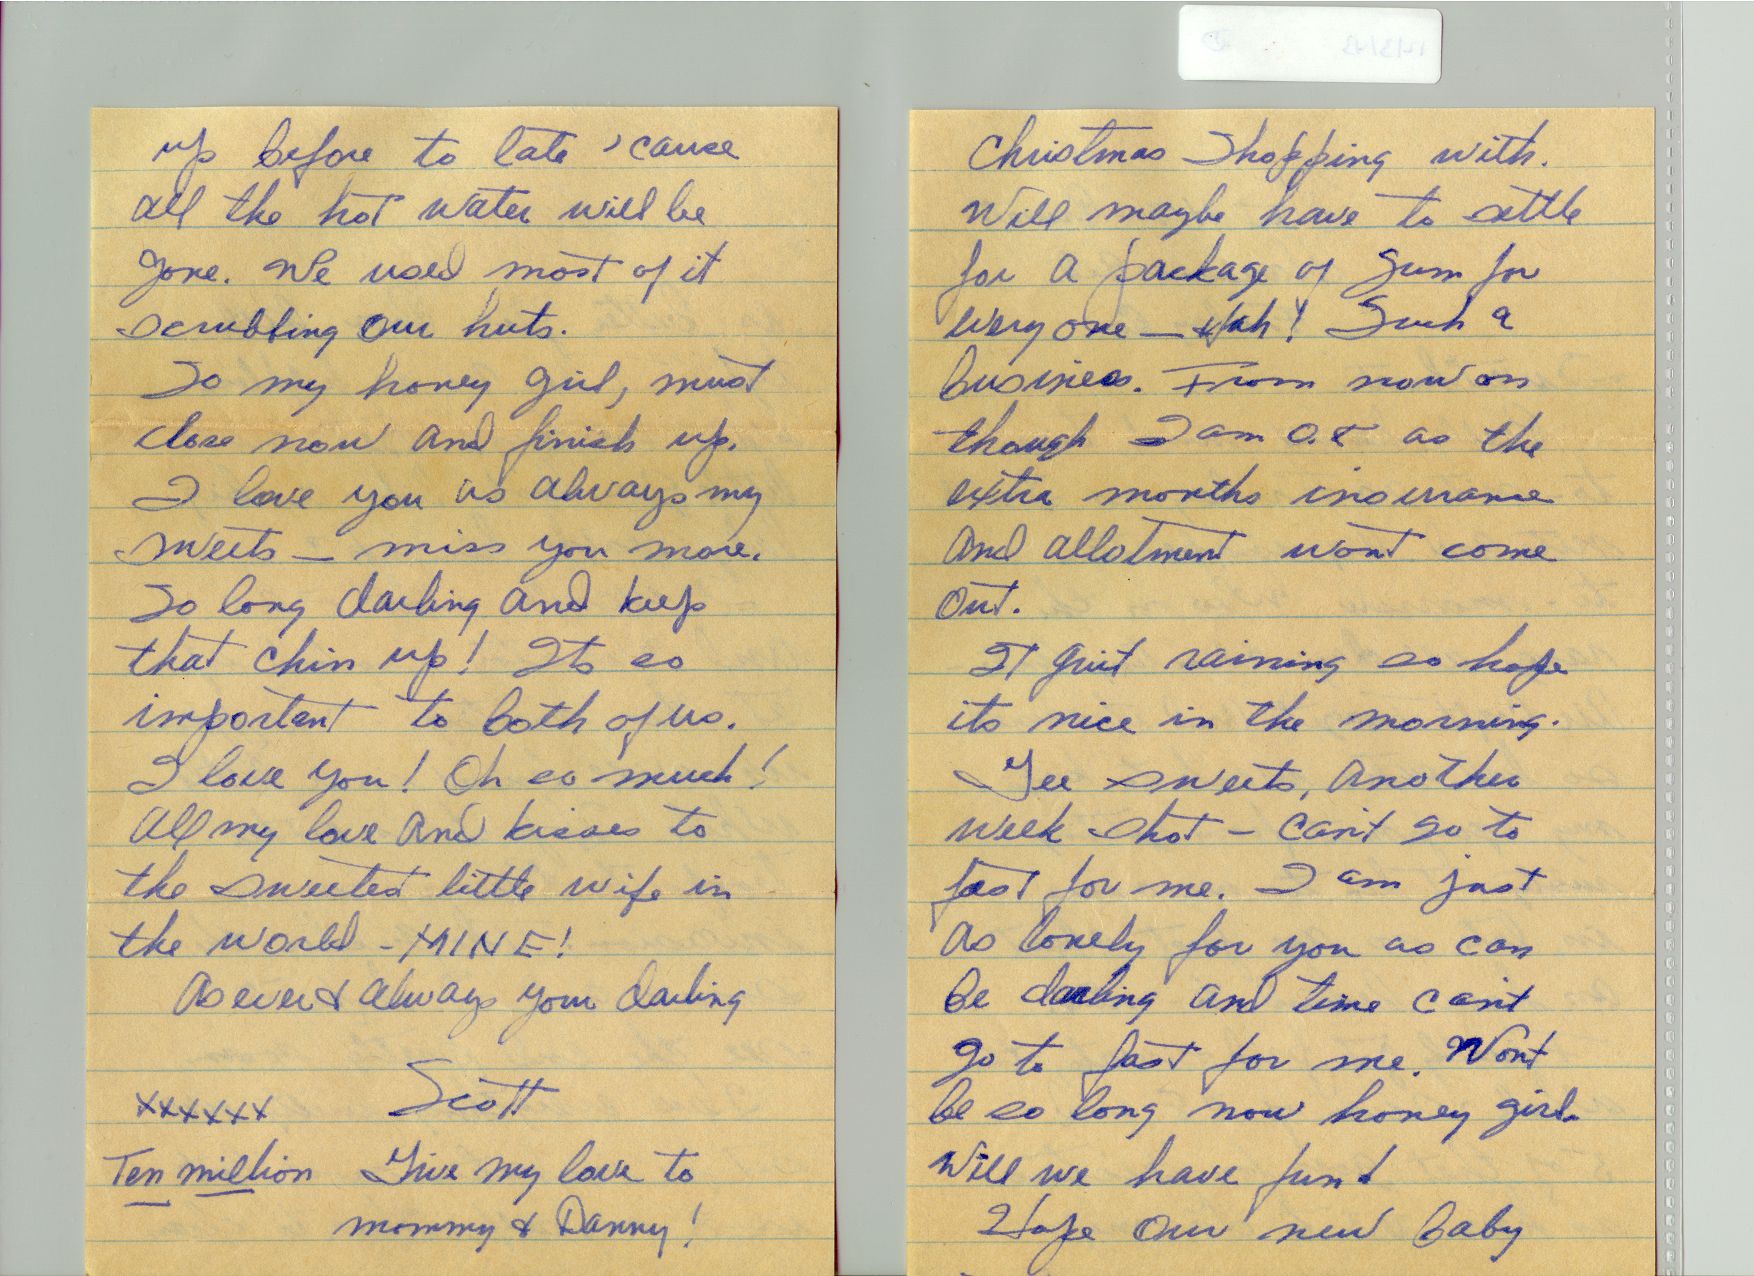 up before to late 'cause
all the hot water will be
gone. We used most of it
scrubbing our huts.
So my honey girl, must
close now and finish up.
I love you as always my
sweets — miss you more.
So long darling and keep
that chin up! Its so
important to both of us.
I love you! Oh so much!
All my love and kisses to
the sweetest little wife in
the world - MINE!
As ever & always your darling
Scott
xxxxxx
Ten million Give my love to
mommy & Danny!
Christmas Shopping with.
Will maybe have to settle
for a package of gum for
everyone — Such a
business. From now on
though I am O.K as the
extra months insurance
and allotment wont come
out.
It quit raining so hope
its nice in the morning.
Gee sweets, another
week shot - can't go to
fast for me. I am just
as lonely for you as can
be darling and time can't
go to fast for me. Wont
be so long now honey girl.
Will we have fun!
Hope our new baby